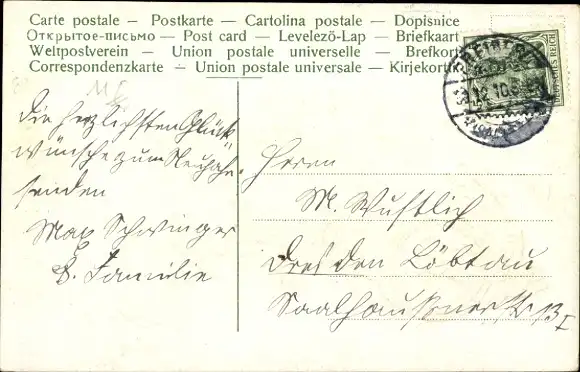 Carte postale – Postkarte – Cartolina postale – Dopisnice
Открытое-письмо – Post card – Levelező-Lap – Briefkaart
Weltpostverein – Union postale universelle – Brefkort
Correspondenzkarte – Union postale universale – Kirjekort
DEUTSCHES REICH
Die herzlichsten Glück-
wünsche zum Neujahr
senden
Max Schwinger
& Familie
Herrn
M. Wustlich
Dresden Löbtau
Saalhausenerstr 13 I